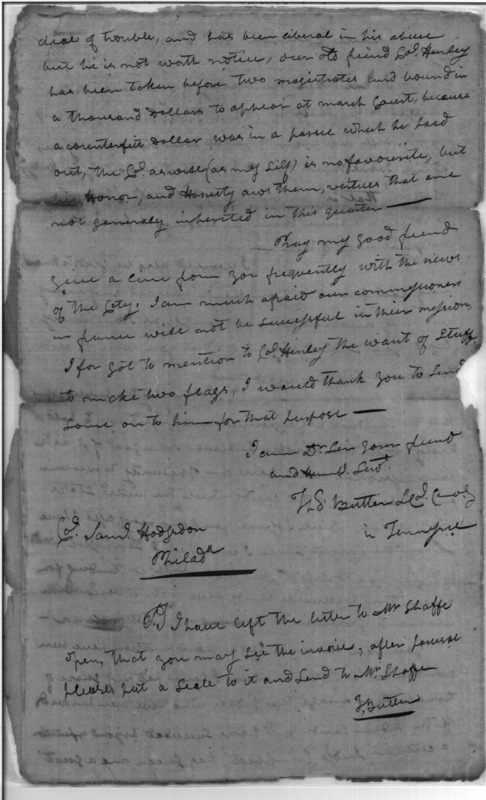 deal of trouble, and has been liberal in his abuse
but he is not worth notice, our old friend Col. Henley
has been taken before two magistrates and bound in
a thousand Dollars to appear at march Court, because
a counterfeit dollar was in a parcel which he paid
out, the Col. as wise (as my self) is no favourite, but
his Honor, and Honesty aws them, vertues that are
not generaly inherited in this quarter —
Pray my good friend
give a line from you frequently with the news
of the City. I am much afraid our commissioners
in france will not be successful in their mission,
I for got to mention to Col. Henley the want of Stuff
to make two flags, I would thank you to Send
Some on to him for that purpose —
I am Dr. Sir your friend
and humb. Servt.
Ts. Butler Lt. Col. Comdg
in Tennessee
Col. Saml. Hodgdon
Philada
PS I have left the letter to Mr Shaffe
open, that you may See the invoice, after perusal
please, put a Seale to it and Send to Mr. Shaffe
T, Butler